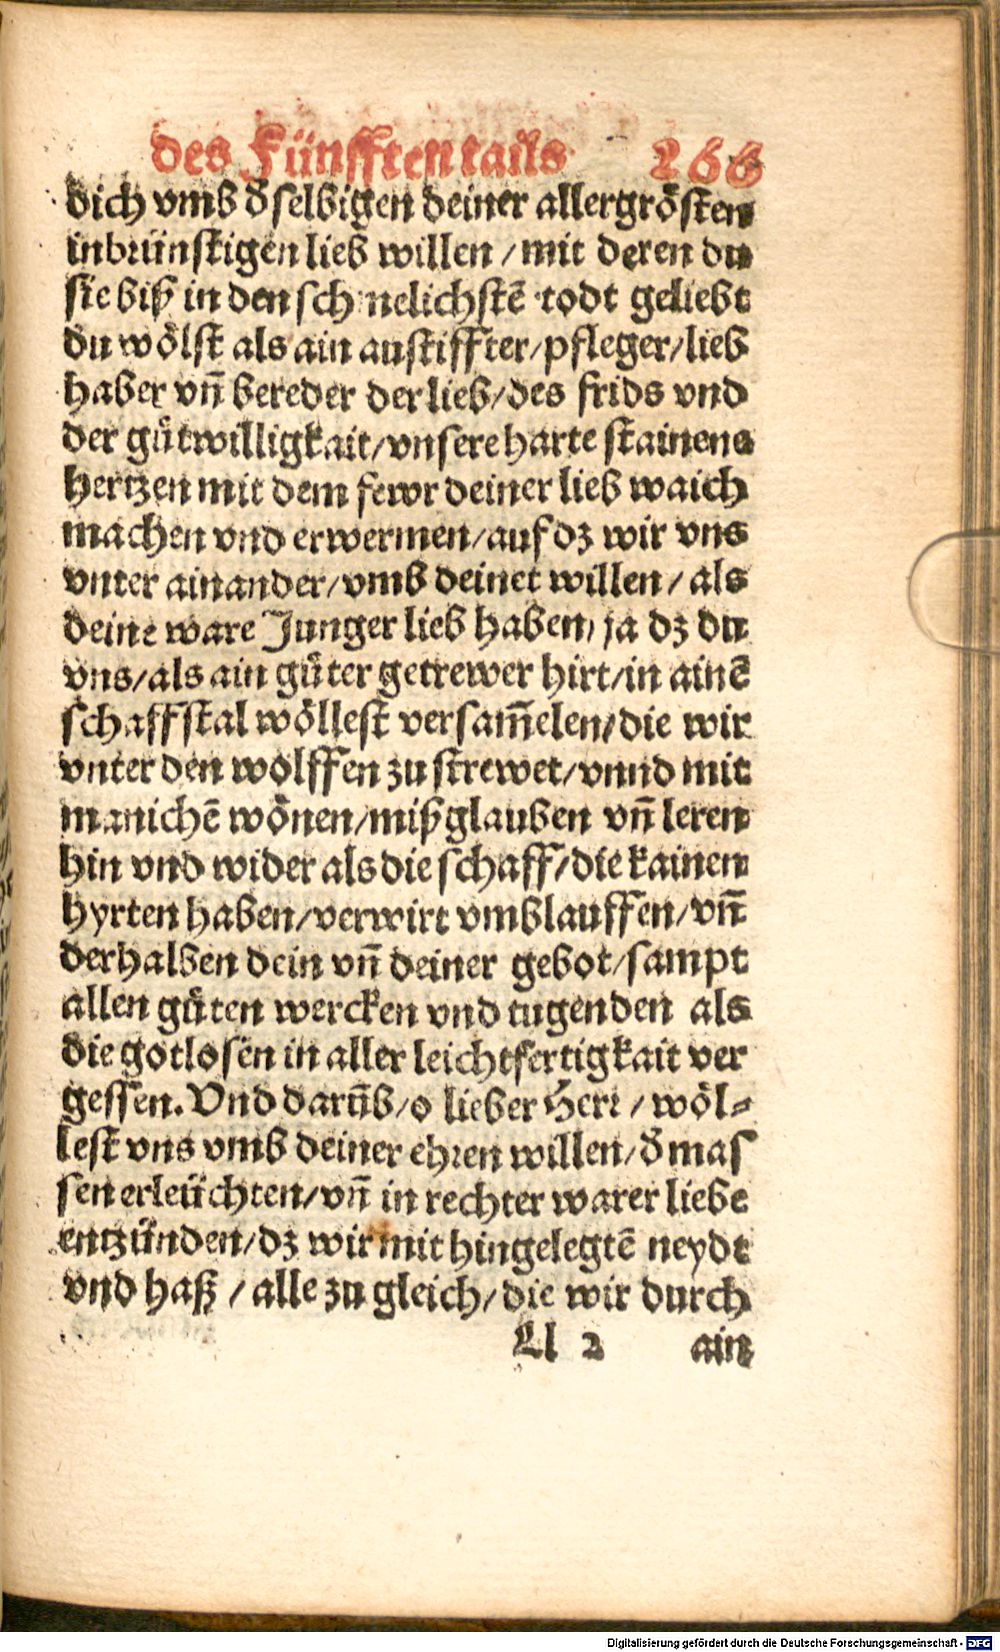 des Fünfften tails 266
dich vmb d̕selbigen deiner allergrösten
inbrünstigen lieb willen / mit deren du
sie biß in den schmelichstē todt geliebt
du wölst als ain austiffter / pfleger / lieb
haber vn̄ bereder der lieb / des frids vnd
der gůtwilligkait / vnsere harte stainene
hertzen mit dem fewr deiner lieb waich
machen vnd erwermen / auf dz wir vns
vnter ainander / vmb deinet willen / als
deine ware Junger lieb haben / ja dz du
vns / als ain gůter getrewer hirt / in ainē
schaffstal wöllest versam̄elen / die wir
vnter den wolffen zu strewet / vnnd mit
manichē wönen / mißglauben vn̄ leren
hin vnd wider als die schaff / die kainen
hyrten haben / verwirt vmblauffen / vn̄
derhalben dein vn̄ deiner gebot / sampt
allen gůten wercken vnd tugenden als
die gotlosen in aller leichtfertigkait ver
gessen. Vnd darūb / o lieber Herr / wöl⸗
lest vns vmb deiner ehren willen / d̕mas
sen erleüchten / vn̄ in rechter warer liebe
entzünden / dz wir mit hingelegtē neydt
vnd haß / alle zu gleich / die wir durch
Ll 2 ain
Digitalisierung gefördert durch die Deutsche Forschungsgemeinschaft - DFG